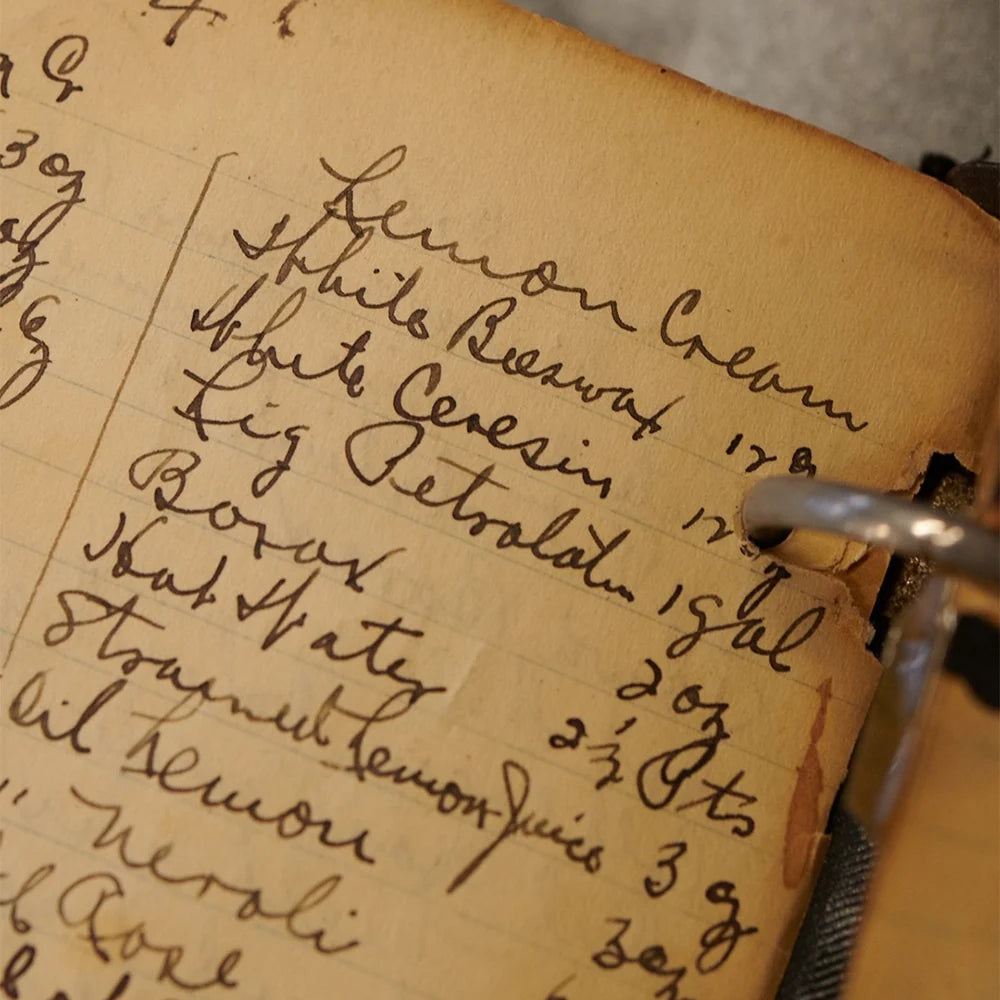 3 oz
oz
Lemon Cream
White Beeswax 12 oz
White Ceresin 12 oz
Liq Petrolatum 1 gal
Borax 2 oz
Hot Water 2 1/2 Pts
Strained Lemon Juice 3 oz
Oil Lemon 3 oz
" Neroli
Rose